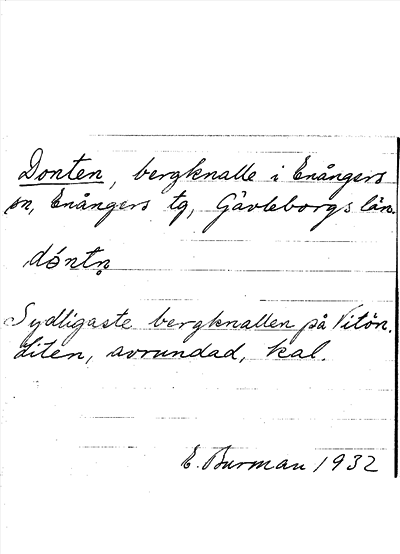 Donten, bergknalle i Enångers
sn, Enångers tg, Gävleborgs län.
dóntn̥
Sydligaste bergknallen på Vitön.
Liten, avrundad, kal.
E. Burman 1932